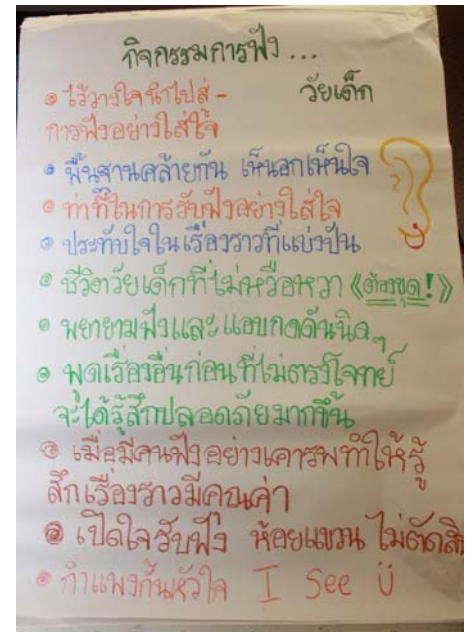 กิจกรรมการฟัง...
วัยเด็ก
• ไว้วางใจนำไปสู่-
การฟังอย่างใส่ใจ
• พื้นฐานคล้ายกัน เห็นอกเห็นใจ
• ท่าทีในการรับฟังอย่างใส่ใจ
• ประทับใจในเรื่องราวที่แบ่งปัน
• ชีวิตวัยเด็กที่ไม่หวือหวา《ต้องขุด!》
• พยายามฟังและแอบกดดันนิดๆ
• พูดเรื่องอื่นก่อนที่ไม่ตรงโจทย์
จะได้รู้สึกปลอดภัยมากขึ้น
• เมื่อมีคนฟังอย่างเคารพทำให้รู้
สึกเรื่องราวมีคุณค่า
• เปิดใจรับฟัง ห้อยแขวน ไม่ตัดสิ
• กำแพงกั้นหัวใจ I See Ü